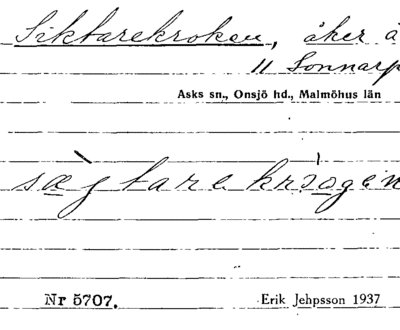 Siktarekroken, åker å
11 Sonnarp
Asks sn., Onsjö hd., Malmöhus län
sægtarekråogen
Nr 5707. Erik Jehpsson 1937